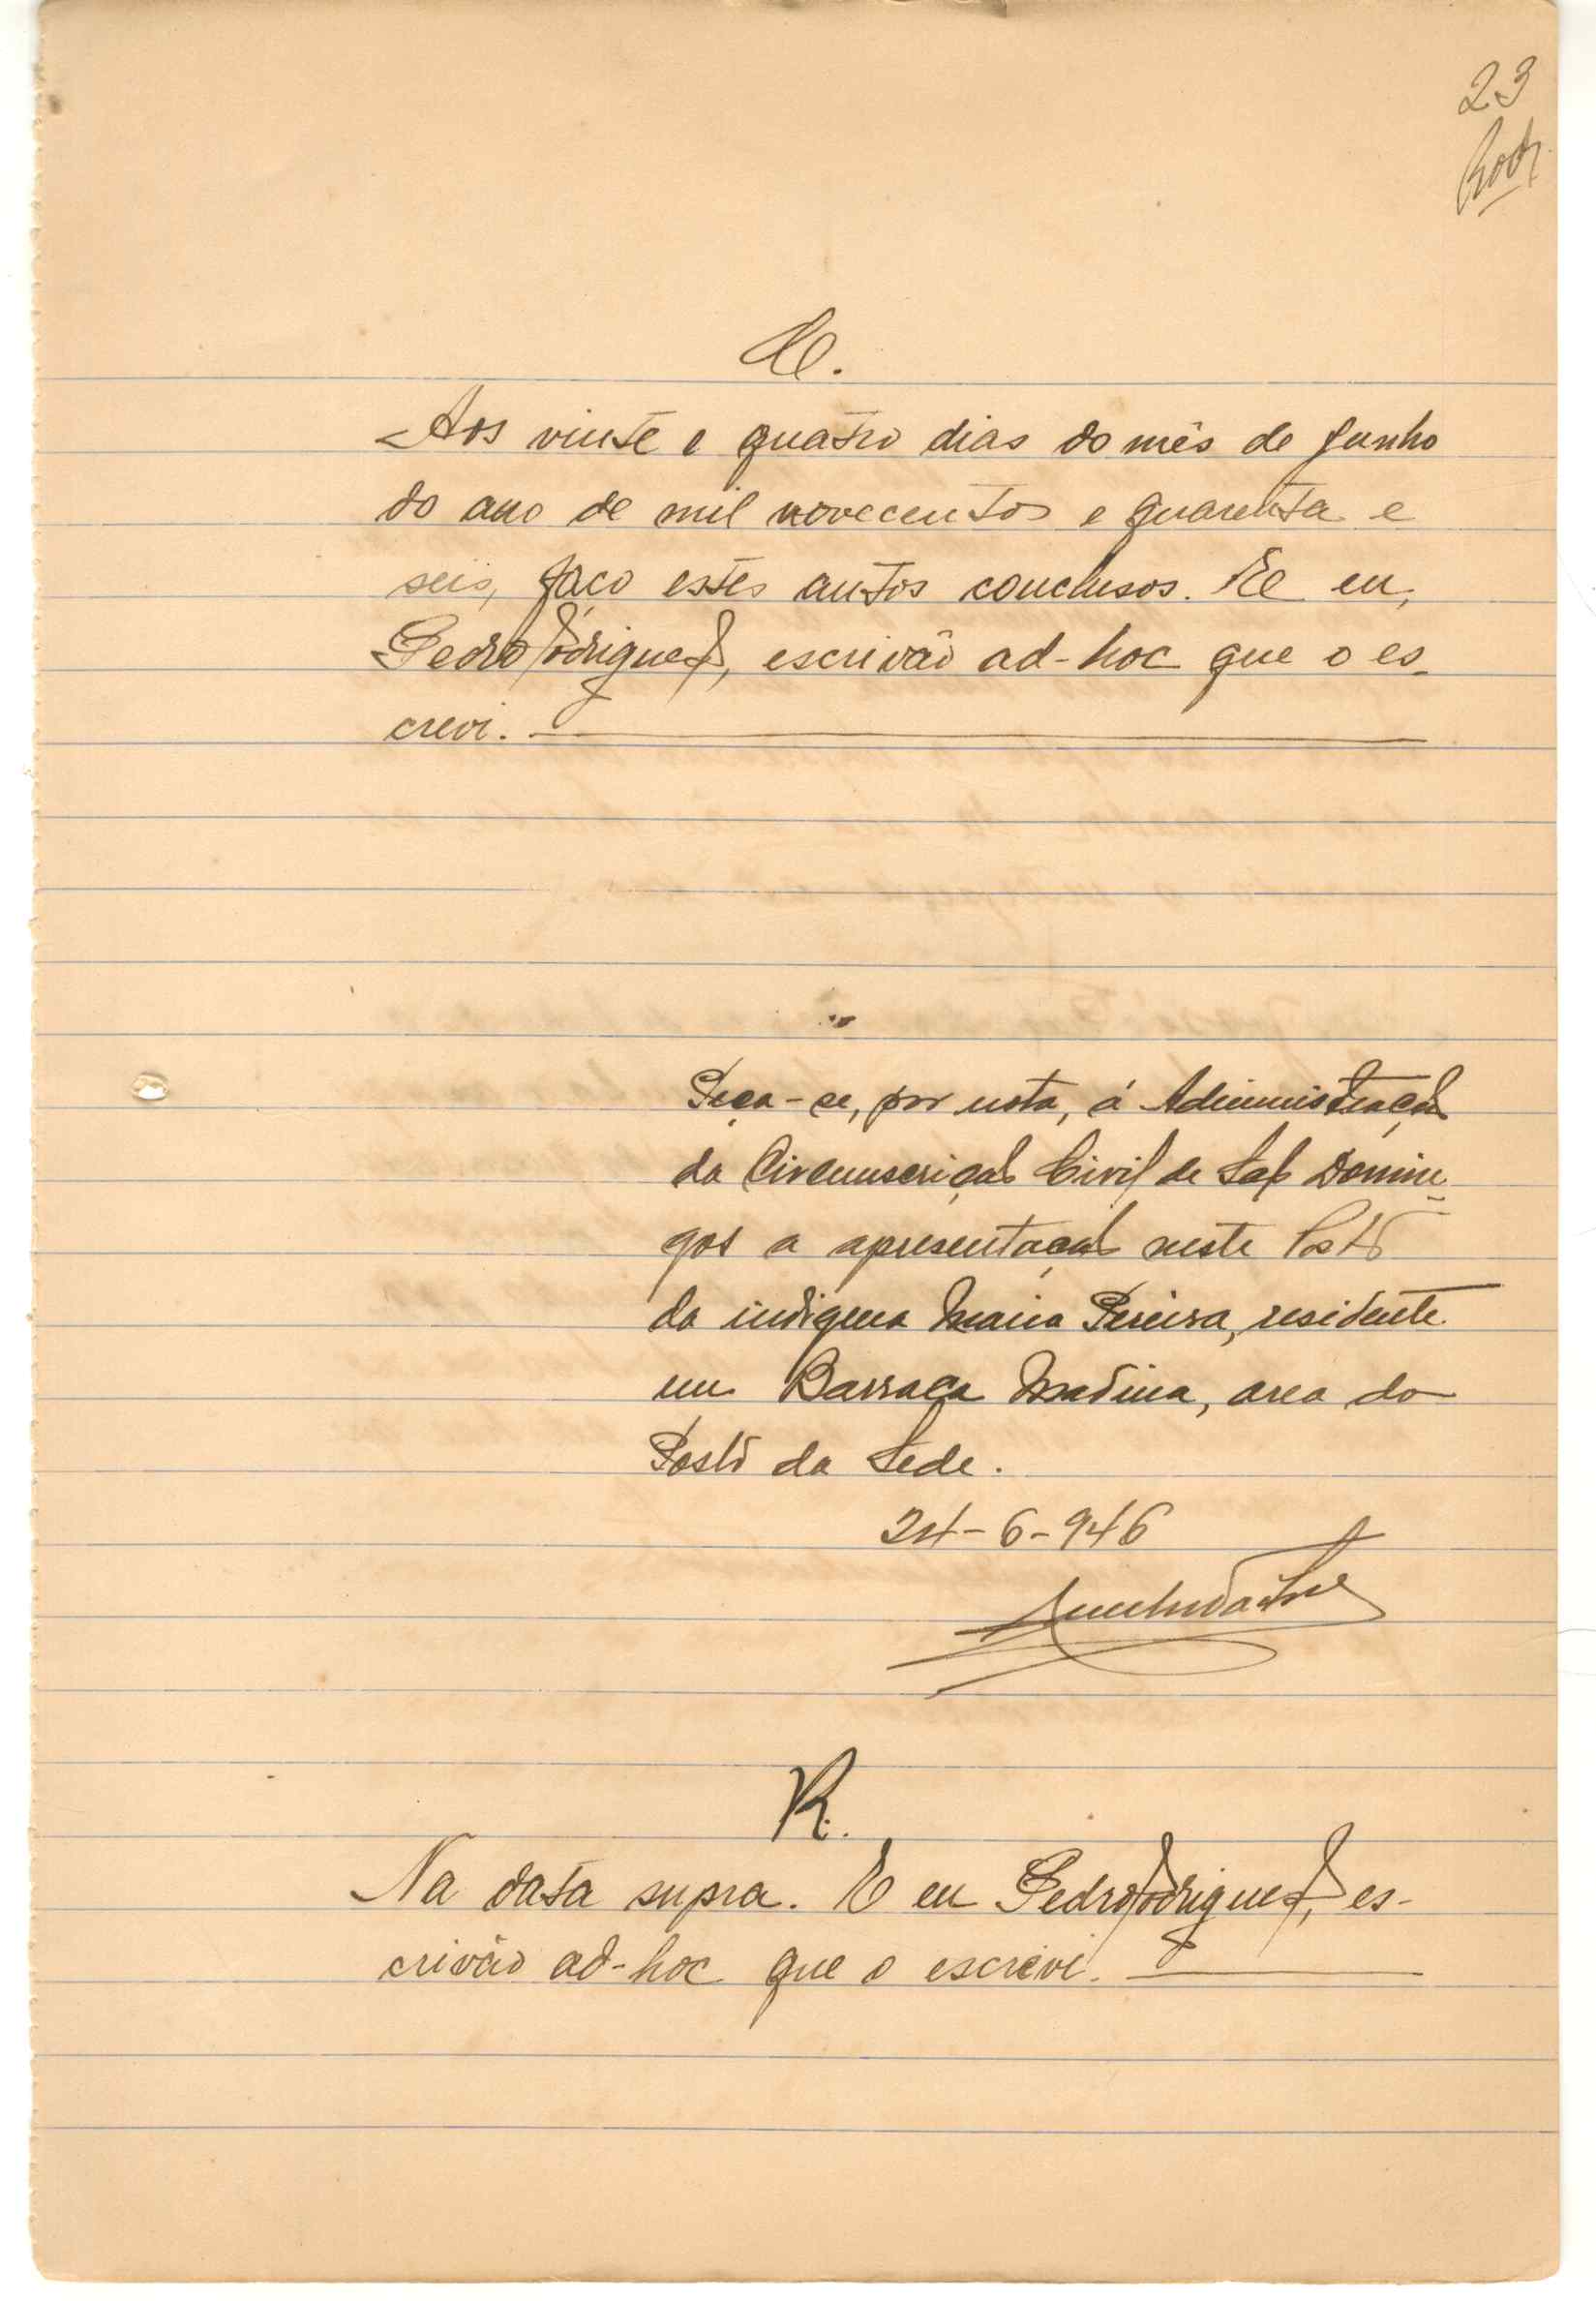 23
Rodr.
Cl.
Aos vinte e quatro dias do mês de Junho
do ano de mil novecentos e quarenta e
seis, faço estes autos conclusos. E eu,
Pedro Rodrigues, escrivão ad-hoc que o es-
crevi.
Peça-se, por nota, á Administração
da Circumscrição Civil de São Domin-
gos a apresentação neste Posto
da indigena Maria Pereira, residente
em Barraca Madina, area do
Posto da Sede.
24-6-946
R.
Na data supra. E eu Pedro Rodrigues, es-
crivão ad-hoc que o escrevi.